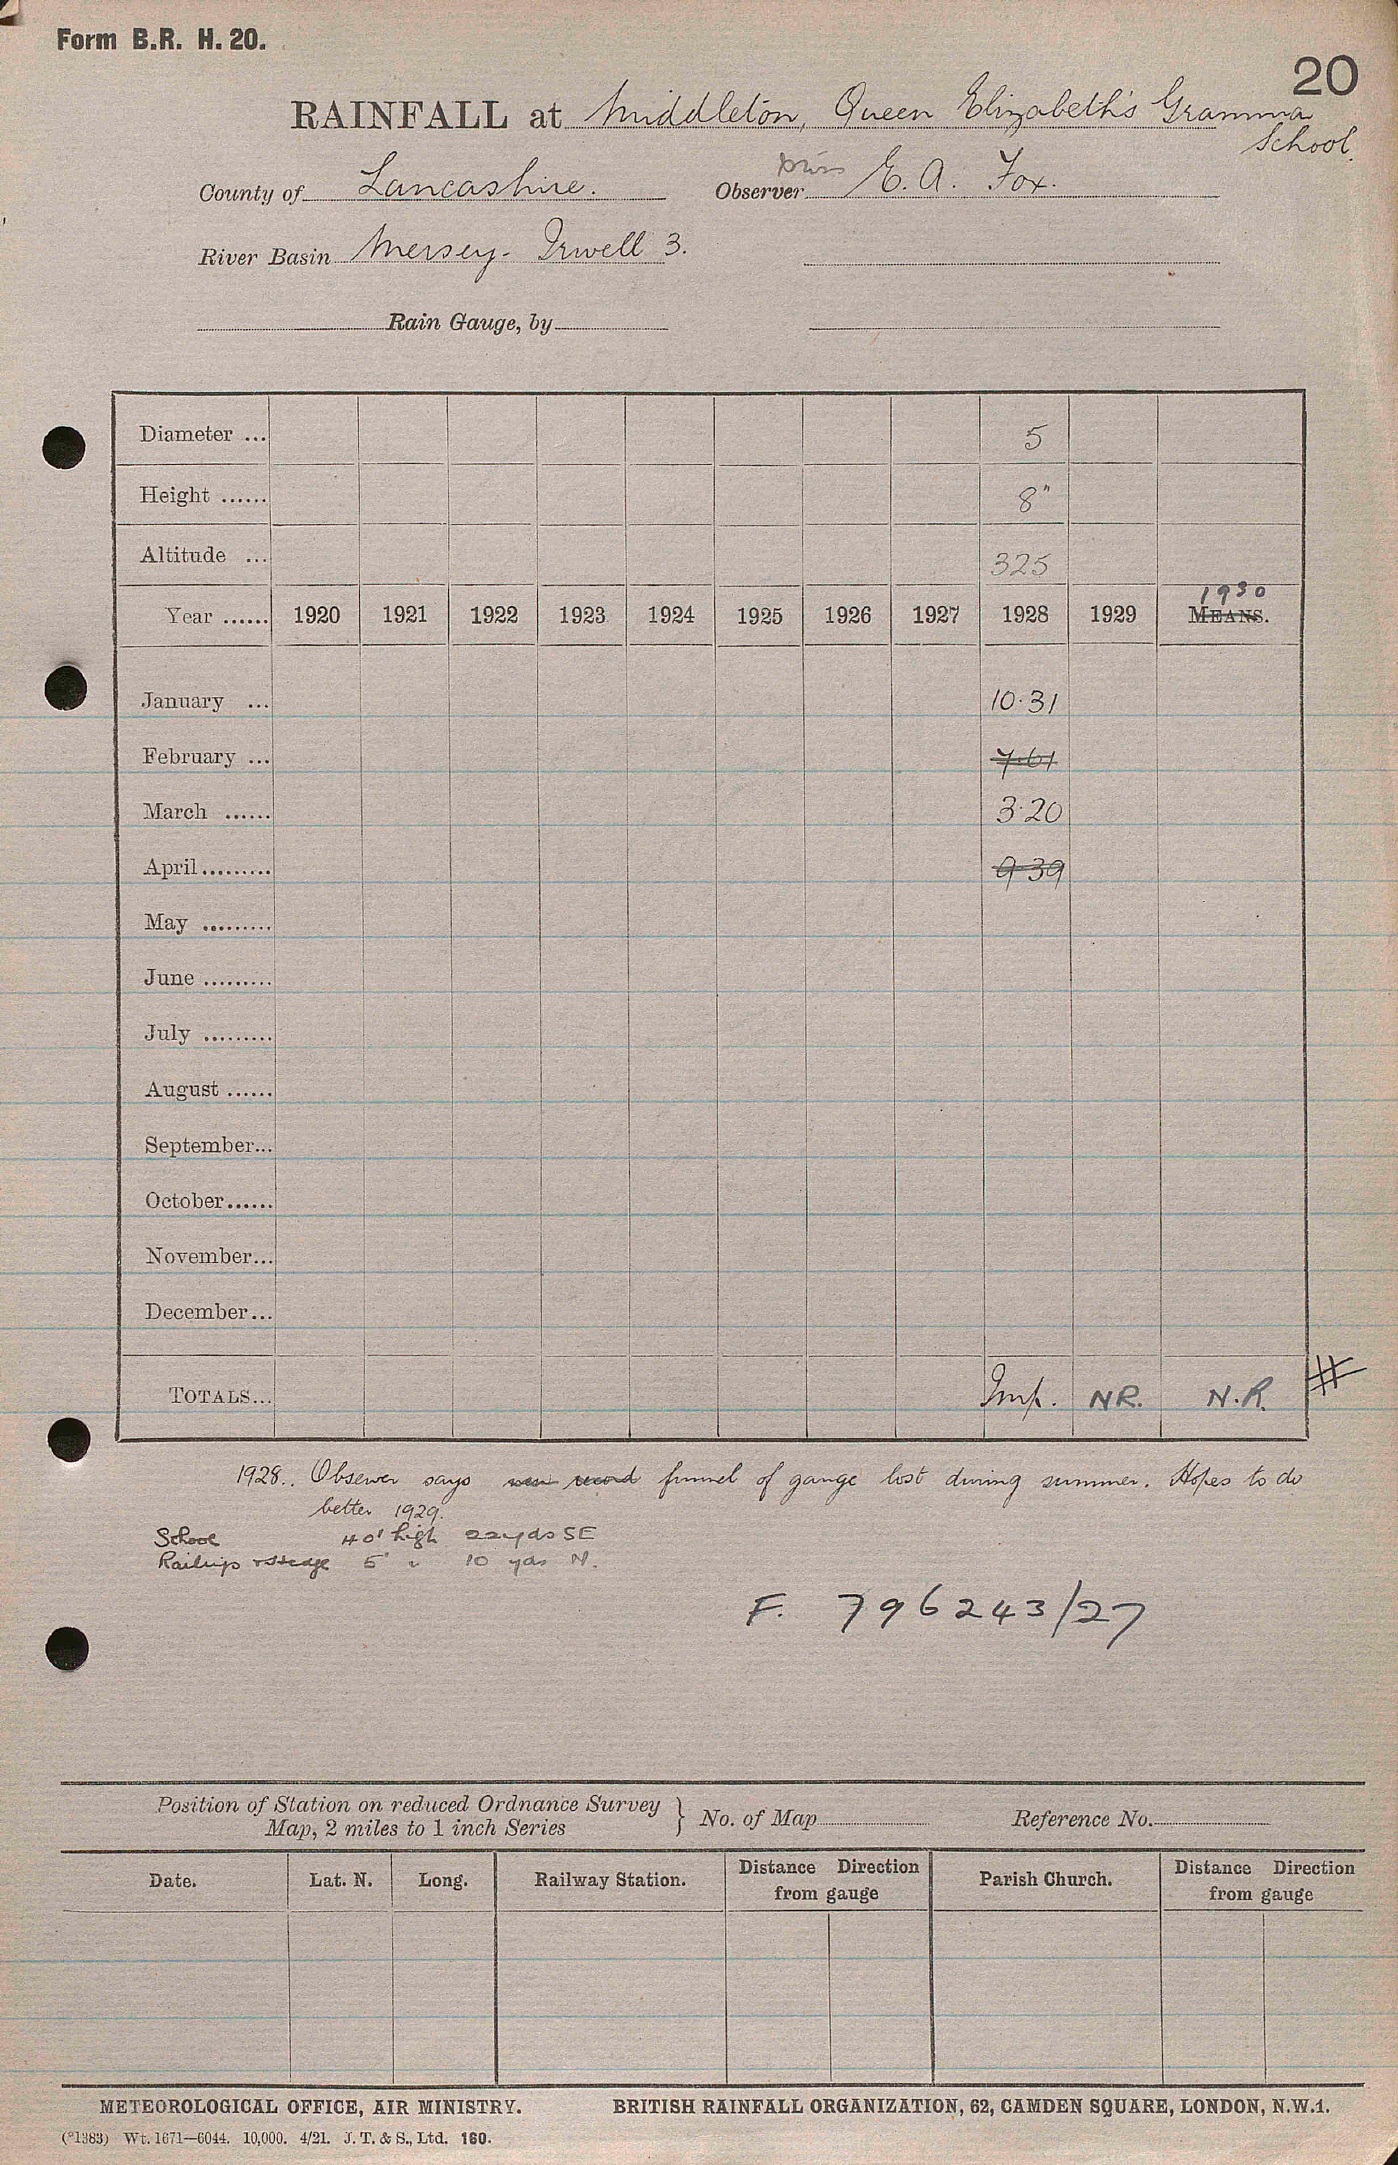 Form B.R. H. 20.
20
RAINFALL at Middleton, Queen Elizabeth's Gramma
School.
Miss
County of Lancashire. Observer E. A. Fox.
River Basin Mersey - Irwell 3.
Rain Gauge, by
Diameter ... 5
Height ...... 8"
Altitude ... 325
1930
Year ...... 1920 1921 1922 1923 1924 1925 1926 1927 1928 1929 MEANS.
January ... 10.31
February ... 7.61
March ...... 3.20
April ......... 9.39
May .........
June .........
July .........
August ......
September...
October......
November...
December...
TOTALS... Imp. NR. N.R. #
1928.. Observer says new record funnel of gauge lost during summer. Hopes to do
better 1929.
School 40' high 22yds SE
Railings 5' " 10 yds N.
F. 796243/27
Position of Station on reduced Ordnance Survey
Map, 2 miles to 1 inch Series } No. of Map Reference No.
Date. Lat. N. Long. Railway Station. Distance Direction from gauge Parish Church. Distance Direction from gauge
METEOROLOGICAL OFFICE, AIR MINISTRY. BRITISH RAINFALL ORGANIZATION, 62, CAMDEN SQUARE, LONDON, N.W.1.
(*1383) Wt. 1671—6044. 10,000. 4/21. J. T. & S., Ltd. 160.